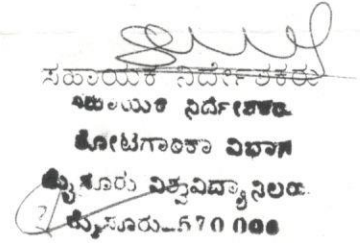 ಸಹಾಯಕ ನಿರ್ದೇಶಕರು
ಸಹಾಯಕ ನಿರ್ದೇಶಕರು
ತೋಟಗಾರಿಕಾ ವಿಭಾಗ
ಮೈಸೂರು ವಿಶ್ವವಿದ್ಯಾನಿಲಯ
ಮೈಸೂರು-570 006